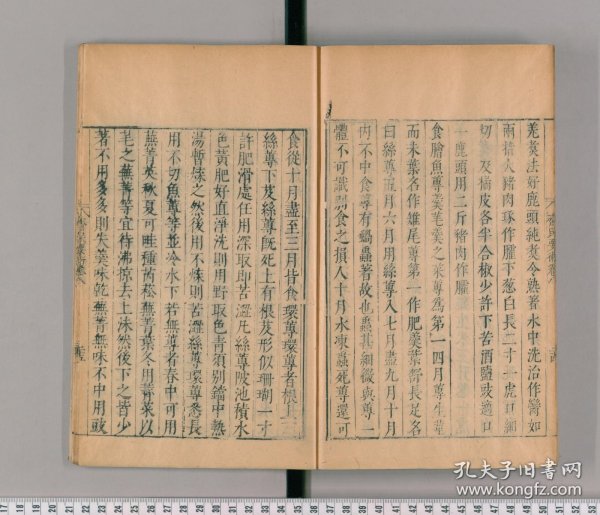 羌煮法好鹿頭純煮令熟著水中洗治作臠如
兩指大豬肉琢作臛下葱白長二寸一虎口細
切薑及橘皮各半合椒少許下苦酒鹽豉適口
一鹿頭用二斤豬肉作臛
食膾魚蓴羹芼羹之菜蓴為第一四月蓴生莖
而未葉名作雉尾蓴第一作肥羹葉舒長足名
曰絲蓴五月六月用絲蓴入七月盡九月十月
內不中食蓴有蝸蟲著故也蟲甚細微與蓴一
體不可識別食之損人十月水凍蟲死蓴還可
食從十月盡至三月皆食環蓴環蓴者根上
絲蓴下芨絲蓴既死上有根芨形似珊瑚一寸
許肥滑處任用深取即苦澀凡絲蓴陂池積水
色黃肥好直淨洗則用野取色青須別鐺中熱
湯暫煠之然後用不煠則苦澀絲蓴環蓴悉長
用不切魚蓴等並冷水下若無蓴者春中可用
蕪菁英秋夏可畦種芮菘蕪菁葉冬用薺菜以
芼之蕪菁等宜待沸掠去上沫然後下之皆少
著不用多多則失羹味乾蕪菁無味不中用豉
孔夫子旧书网
www.kongfz.com
17 18 19 20 21 22 23 24 25 26 27 28 29 30 31 32 33 34 35 36 37 38 39 40 41 42 43 44 45 46 47 48 49 50 51 52 53